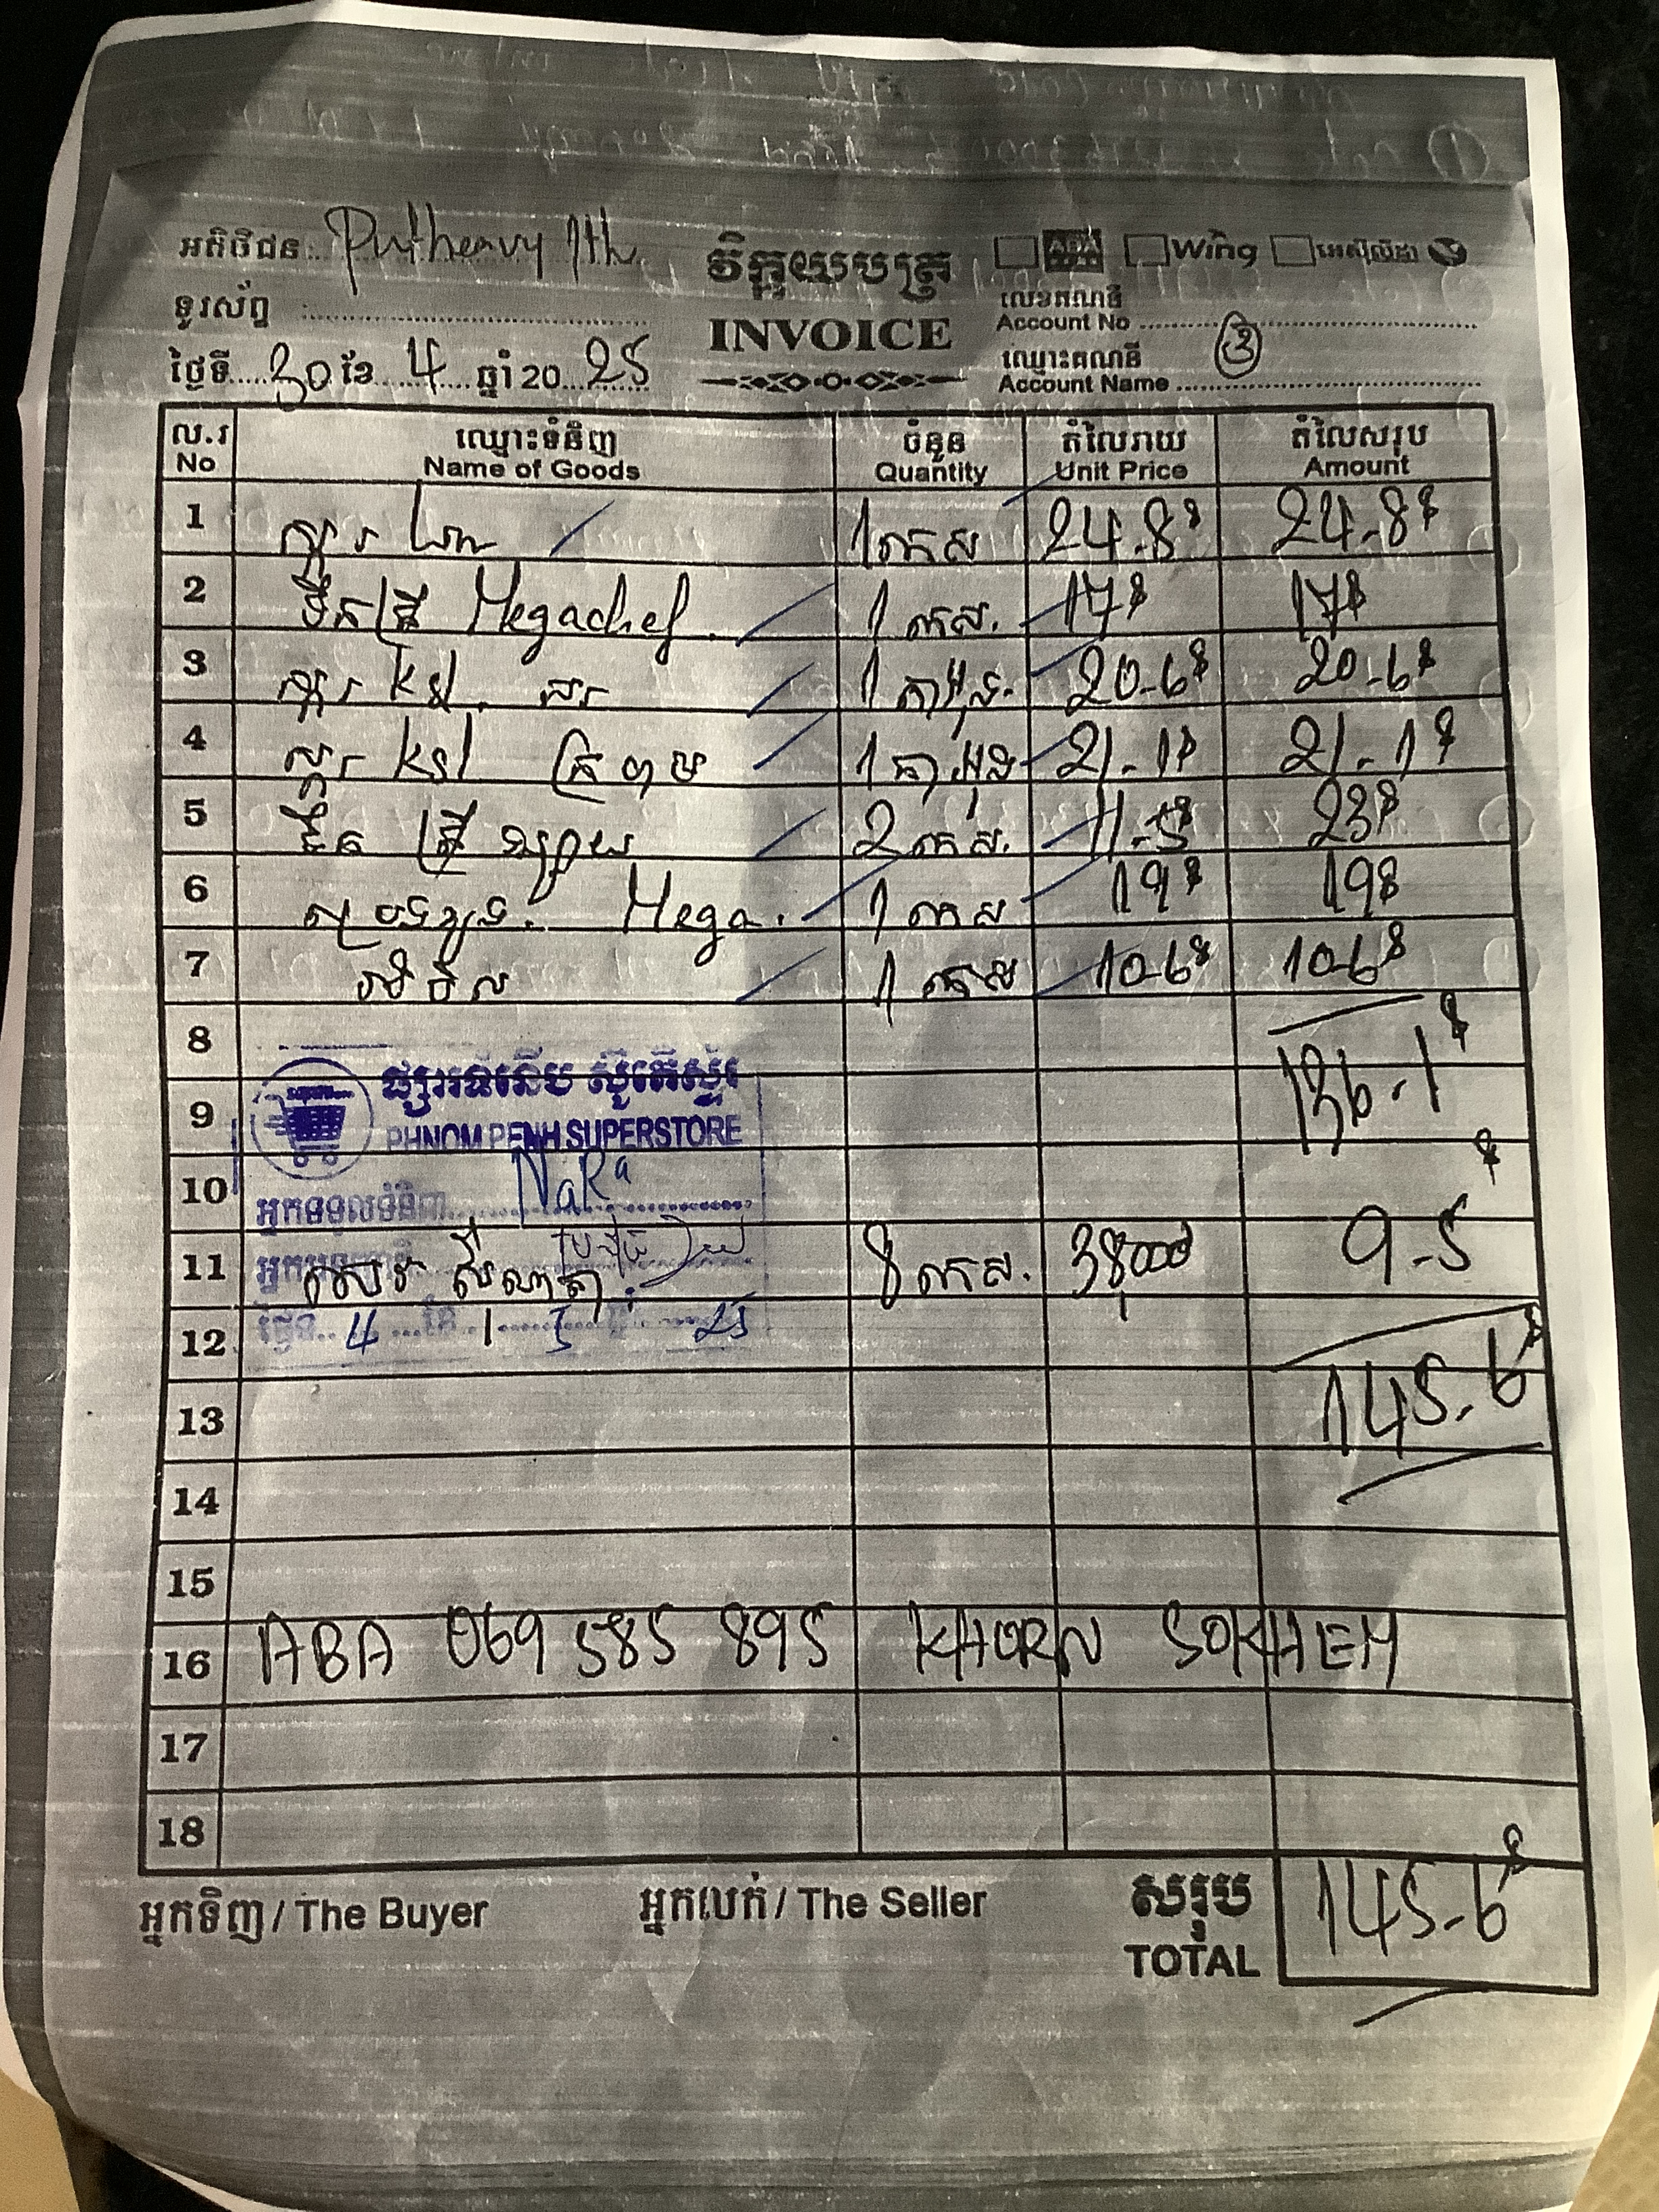 អតិថិជន: Putheavy 1th
វិក្កយបត្រ
ABA Wing អេស៊ីលីដា
ទូរស័ព្ទ
INVOICE
លេខគណនី
Account No
ថ្ងៃទី 30 ខែ 4 ឆ្នាំ 20 25
ឈ្មោះគណនី
Account Name
3
ល.រ ឈ្មោះទំនិញ ចំនួន តំលៃរាយ តំលៃសរុប
No Name of Goods Quantity Unit Price Amount
1 ស្ករ 1 កេស 24.8$ 24.8$
2 ទឹកត្រី Megachef 1 កេស. 17$ 17$
3 ស្ករ ksl ស 1 20-6$ 20-6$
4 ស្ករ ksl 1 21-1$ 21-1$
5 ទឹកត្រី 2 កេស. 11-5$ 23$
6 Mega. 1 កេស 19$ 19$
7 1 កេស 10-6$ 10-6$
8
136-1$
ផ្សារទំនើប ស៊ូពើស្ទ័រ
9
PHNOM PENH SUPERSTORE
10 អ្នកទទួលទំនិញ NaRa
11 8 កេស. 38000៛ 9-5$
12 ថ្ងៃទី 4 ខែ 5 25
145-6$
13
14
15
16 ABA 069 585 895 KHORN SOKHEM
17
18
អ្នកទិញ / The Buyer អ្នកលក់ / The Seller សរុប
TOTAL 145-6$